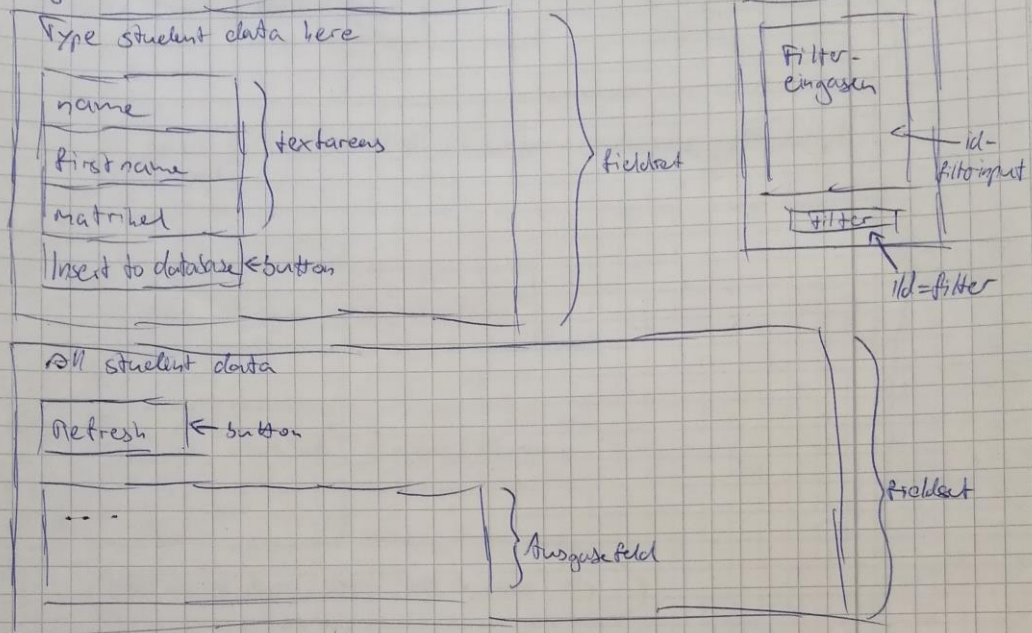 Type student data here
name
firstname
Matrikel
textareas
Insert to database
button
fieldset
Filter-
eingaben
id=
filterinput
filter
id=filter
All student data
Refresh
button
...
Ausgabefeld
fieldset